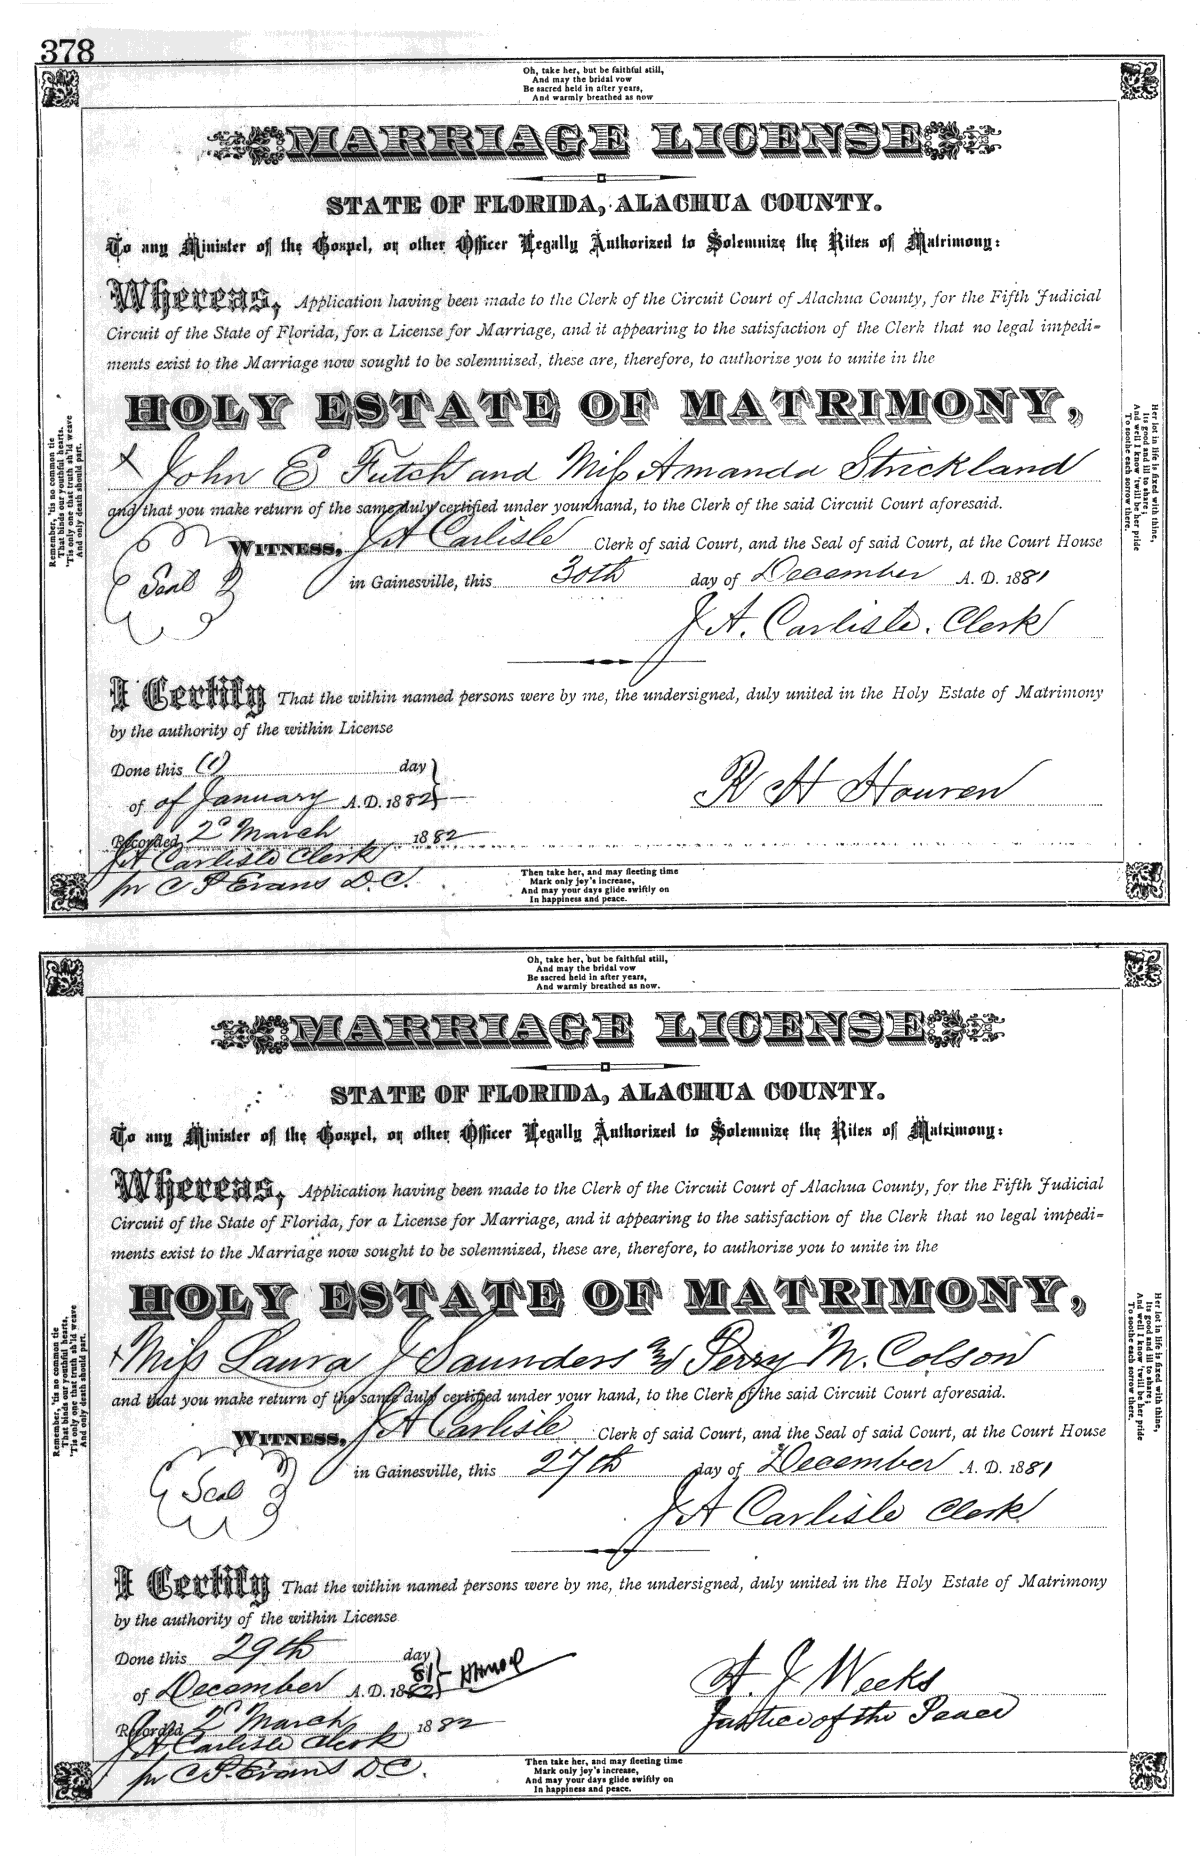 378
Oh, take her, but be faithful still,
And may the bridal vow
Be sacred held in after years,
And warmly breathed as now
MARRIAGE LICENSE
STATE OF FLORIDA, ALACHUA COUNTY.
To any Minister of the Gospel, or other Officer Legally Authorized to Solemnize the Rites of Matrimony:
Whereas, Application having been made to the Clerk of the Circuit Court of Alachua County, for the Fifth Judicial
Circuit of the State of Florida, for a License for Marriage, and it appearing to the satisfaction of the Clerk that no legal impedi-
ments exist to the Marriage now sought to be solemnized, these are, therefore, to authorize you to unite in the
HOLY ESTATE OF MATRIMONY,
x John E Futch and Miss Amanda Strickland
and that you make return of the same duly certified under your hand, to the Clerk of the said Circuit Court aforesaid.
WITNESS, J A Carlisle Clerk of said Court, and the Seal of said Court, at the Court House
Seal
in Gainesville, this 30th day of December A. D. 1881
J A. Carlisle. Clerk
I Certify That the within named persons were by me, the undersigned, duly united in the Holy Estate of Matrimony
by the authority of the within License
Done this (1) day
of of January A. D. 1882
R H Houren
Recorded 2d March 1882
J A Carlisle Clerk
pr C P Evans D. C.
Remember, 'tis no common tie
That binds our youthful hearts,
'Tis only one that truth sh'ld weave
And only death should part.
Her lot in life is fixed with thine,
Its good and ill to share;
And well I know 'twill be her pride
To soothe each sorrow there.
Then take her, and may fleeting time
Mark only joy's increase,
And may your days glide swiftly on
In happiness and peace.
Oh, take her, but be faithful still,
And may the bridal vow
Be sacred held in after years,
And warmly breathed as now.
MARRIAGE LICENSE
STATE OF FLORIDA, ALACHUA COUNTY.
To any Minister of the Gospel, or other Officer Legally Authorized to Solemnize the Rites of Matrimony:
Whereas, Application having been made to the Clerk of the Circuit Court of Alachua County, for the Fifth Judicial
Circuit of the State of Florida, for a License for Marriage, and it appearing to the satisfaction of the Clerk that no legal impedi-
ments exist to the Marriage now sought to be solemnized, these are, therefore, to authorize you to unite in the
HOLY ESTATE OF MATRIMONY,
x Miss Laura J Saunders and Perry M. Colson
and that you make return of the same duly certified under your hand, to the Clerk of the said Circuit Court aforesaid.
WITNESS, J A Carlisle Clerk of said Court, and the Seal of said Court, at the Court House
Seal
in Gainesville, this 27th day of December A. D. 1881
J A Carlisle Clerk
I Certify That the within named persons were by me, the undersigned, duly united in the Holy Estate of Matrimony
by the authority of the within License
Done this 29th day
of December A. D. 1882 81
A. J Weeks
Justice of the Peace
Recorded 2d March 1882
J A Carlisle Clerk
pr C P. Evans D. C.
Remember, 'tis no common tie
That binds our youthful hearts,
'Tis only one that truth sh'ld weave
And only death should part.
Her lot in life is fixed with thine,
Its good and ill to share;
And well I know 'twill be her pride
To soothe each sorrow there.
Then take her, and may fleeting time
Mark only joy's increase,
And may your days glide swiftly on
In happiness and peace.